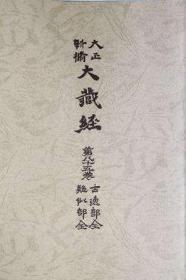 大正
新脩
大藏經
第八十五卷
古逸部全
疑似部全